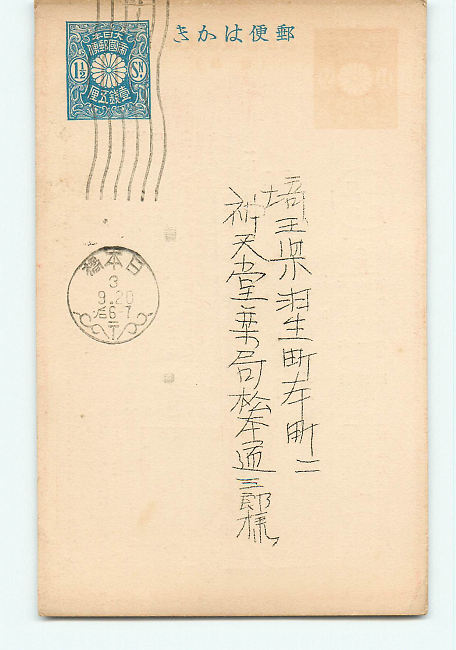 郵便はかき
大日本
帝國郵便
1½ Sn.
壹銭五厘
日本橋
3
9.20
后6-7
埼玉県羽生町本町二
祈天堂薬局松本通三郎様